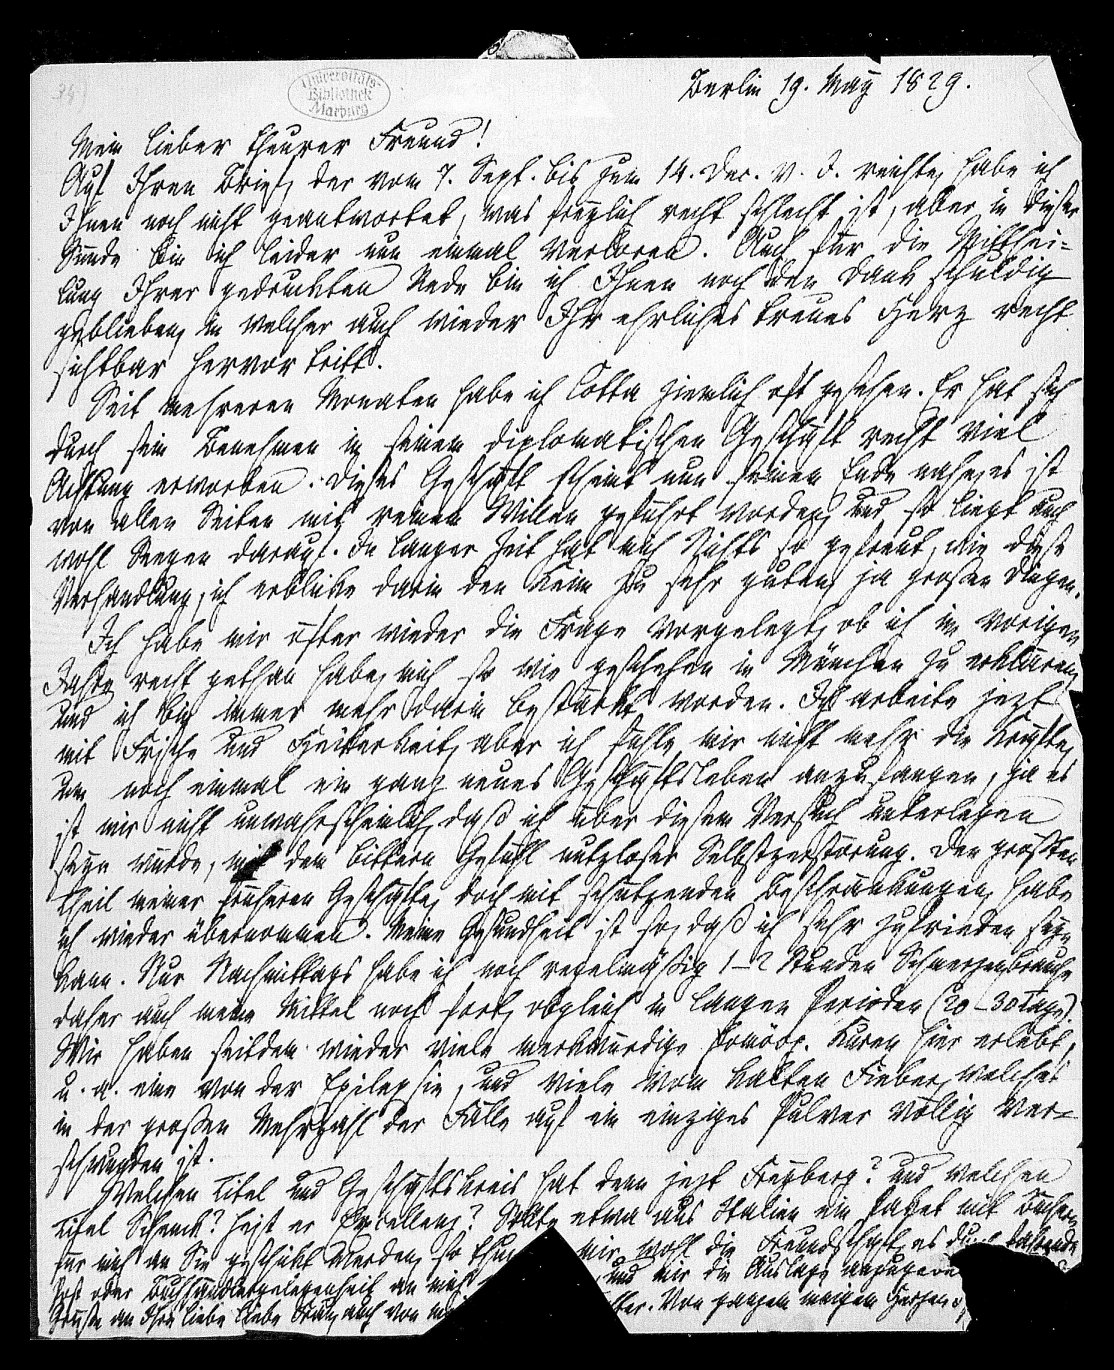 Universitäts-
Bibliothek
Marburg
Berlin 19. May 1829.
Mein lieber theurer Freund!
Auf Ihren Brief, der vom 7. Sept. bis zum 14. Dec. v. J. reichte, habe ich
Ihnen noch nicht geantwortet, was freylich recht schlecht ist, aber in dieser
Sünde bin ich leider nun einmal verloren. Auch für die Mitthei-
lung Ihrer gedruckten Rede bin ich Ihnen noch den Dank schuldig
geblieben, in welcher auch wieder Ihr ehrliches treues Herz recht
sichtbar hervor tritt.
Seit mehreren Monaten habe ich Cotta ziemlich oft gesehen. Er hat sich
durch sein Benehmen in seinem diplomatischen Geschäft recht viel
Achtung erworben. Dieses Geschäft scheint nun seinem Ende nahe, es ist
von allen Seiten mit reinem Willen geführt worden, und so liegt auch
wohl Seegen darauf. In langer Zeit hat mich Nichts so gefreut, wie diese
Verhandlung, ich erblicke darin den Keim zu sehr guten, ja großen Dingen.
Ich habe mir öfter wieder die Frage vorgelegt, ob ich im vorigen
Jahre recht gethan habe, mich so wie geschehen in München zu erklären,
und ich bin immer mehr darin bestärkt worden. Ich arbeite jezt
mit Frische und Heiterkeit, aber ich fühle mir nicht mehr die Kräfte,
um noch einmal ein ganz neues Geschäftsleben anzufangen, ja es
ist mir nicht unwahrscheinlich, daß ich über diesem Versuch unterlegen
seyn würde, mit dem bittern Gefühl nutzloser Selbstzerstörung. Den größten
Theil meiner früheren Geschäfte, doch mit schützenden Beschränkungen, habe
ich wieder übernommen. Meine Gesundheit ist so, daß ich sehr zufrieden seyn
kann. Nur Nachmittags habe ich noch regelmäßig 1–2 Stunden Schmerzen, brauche
daher auch meine Mittel noch fort, obgleich in langen Perioden (20–30 Tage).
Wir haben seitdem wieder viele merkwürdige homöop. Kuren hier erlebt,
u. a. eine von der Epilepsie, und viele vom kalten Fieber, welches
in der großen Mehrzahl der Fälle auf ein einziges Pulver völlig ver-
schwunden ist.
Welchen Titel und Geschäftskreis hat denn jezt Freyberg? und welchen
Titel Schenck? heißt er Excellenz? Sollte etwa aus Italien ein Paket mit Büchern
für mich an Sie geschickt werden, so thun mir wohl die Freundschaft, es durch
Post oder Buchhändlergelegenheit an mich und mir die Auslage anzugeben
Grüße an Ihre liebe liebe Frau, auch von Von ganzem innigen Herzen